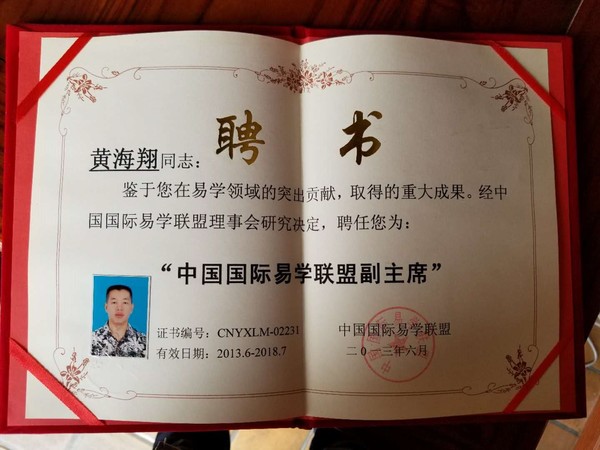 聘书
黄海翔同志：
鉴于您在易学领域的突出贡献，取得的重大成果。经中
国国际易学联盟理事会研究决定，聘任您为：
“中国国际易学联盟副主席”
证书编号：CNYXLM-02231
中国国际易学联盟
有效日期：2013.6-2018.7
二0一三年六月